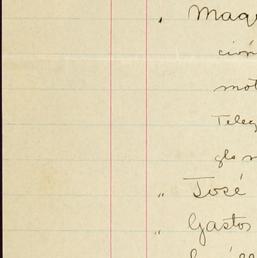 " Maq
ción
mot
Teleg
glo m
" José
" Gastos